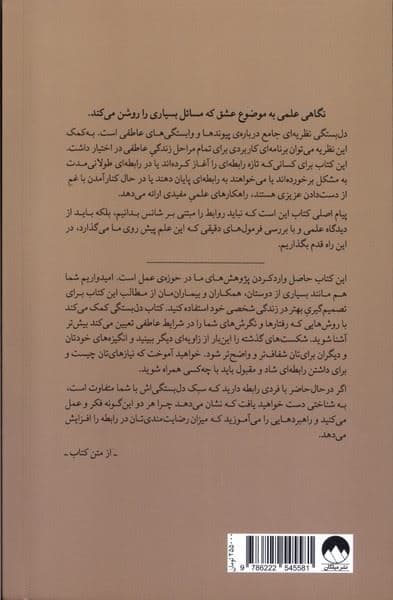 نگاهی علمی به موضوع عشق که مسائل بسیاری را روشن می‌کند.
دل‌بستگی نظریه‌ای جامع درباره‌ی پیوندها و وابستگی‌های عاطفی است. به‌کمک
این نظریه می‌توان برنامه‌ای کاربردی برای تمام مراحل زندگی عاطفی در اختیار داشت.
این کتاب برای کسانی‌که تازه رابطه‌ای را آغاز کرده‌اند یا در رابطه‌ای طولانی‌مدت
به مشکل برخورده‌اند یا می‌خواهند به رابطه‌ای پایان دهند یا در حال کنارآمدن با غم
از دست‌دادن عزیزی هستند، راهکارهای علمی مفیدی ارائه می‌دهد.
پیام اصلی کتاب این است که نباید روابط را مبتنی بر شانس بدانیم، بلکه باید از
دیدگاه علمی و با بررسی فرمول‌های دقیقی که این علم پیش روی ما می‌گذارد، در
این راه قدم بگذاریم.
این کتاب حاصل واردکردن پژوهش‌های ما در حوزه‌ی عمل است. امیدواریم شما
هم مانند بسیاری از دوستان، همکاران و بیماران‌مان از مطالب این کتاب برای
تصمیم‌گیری بهتر در زندگی شخصی خود استفاده کنید. کتاب دل‌بستگی کمک می‌کند
با روش‌هایی که رفتارها و نگرش‌های شما را در شرایط عاطفی تعیین می‌کند بیش‌تر
آشنا شوید. شکست‌های گذشته را این‌بار از زاویه‌ای دیگر ببینید و انگیزه‌های خودتان
و دیگران برای‌تان شفاف‌تر و واضح‌تر شود. خواهید آموخت که نیازهای‌تان چیست و
برای داشتن رابطه‌ای شاد و مقبول باید با چه‌کسی همراه شوید.
اگر درحال‌حاضر با فردی رابطه دارید که سبک دل‌بستگی‌اش با شما متفاوت است،
به شناختی دست خواهید یافت که نشان می‌دهد چرا هر دو این‌گونه فکر و عمل
می‌کنید و راهبردهایی را می‌آموزید که میزان رضایت‌مندی‌تان در رابطه را افزایش
می‌دهد.
ـ از متن کتاب ـ
۲۵۵۰۰۰ تومان
9 786222 545581
نشر میلکان